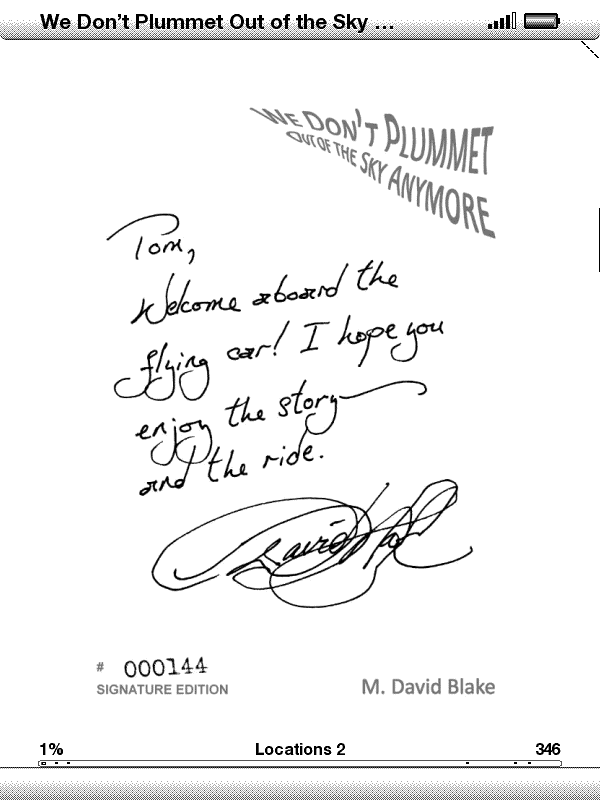 We Don't Plummet Out of the Sky ...
WE DON'T PLUMMET
OUT OF THE SKY ANYMORE
Tom,
Welcome aboard the
flying car! I hope you
enjoy the story—
and the ride.
David Blake
# 000144
SIGNATURE EDITION
M. David Blake
1%
Locations 2
346